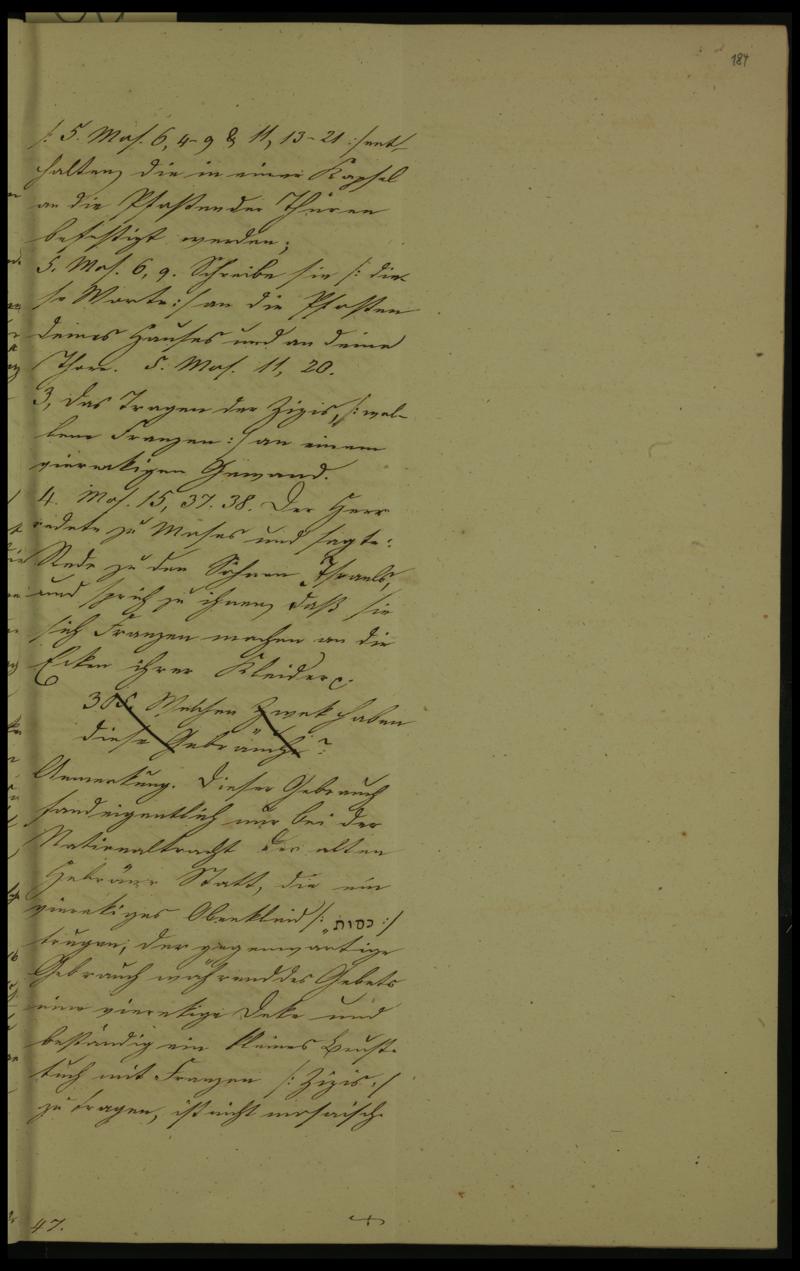 184
/: 5. Mos. 6, 4-9 & 11, 13-21 :/ ent-
halten, die in einer Kapsel
an die Pfosten der Thüren
befestigt werden;
5. Mos. 6, 9. Schreibe sie /: die-
se Worte :/ an die Pfosten
deines Hauses und an deine
Thore. 5. Mos. 11, 20.
3, das Tragen der Zizis, /: wol-
lene Franzen :/ an einem
vierekigen Gewand.
4. Mos. 15, 37. 38. Der Herr
redete zu Moses und sagte:
Rede zu den Söhnen Israels,
und sprich zu ihnen, daß sie
sich Franzen machen an die
Ecken ihrer Kleider
305. Welchen Zwek haben
diese Gebräuche?
Anmerkung. Dieser Gebrauch
fand eigentlich nur bei der
Nationaltracht der alten
Hebräer Statt, die ein
vierekiges Oberkleid /: כסות :/
trugen; der gegenwärtige
Gebrauch während des Gebets
eine vierekige Deke und
beständig ein kleines Brust-
tuch mit Franzen /: Zizis :/
zu tragen, ist nicht mosaisch
47.